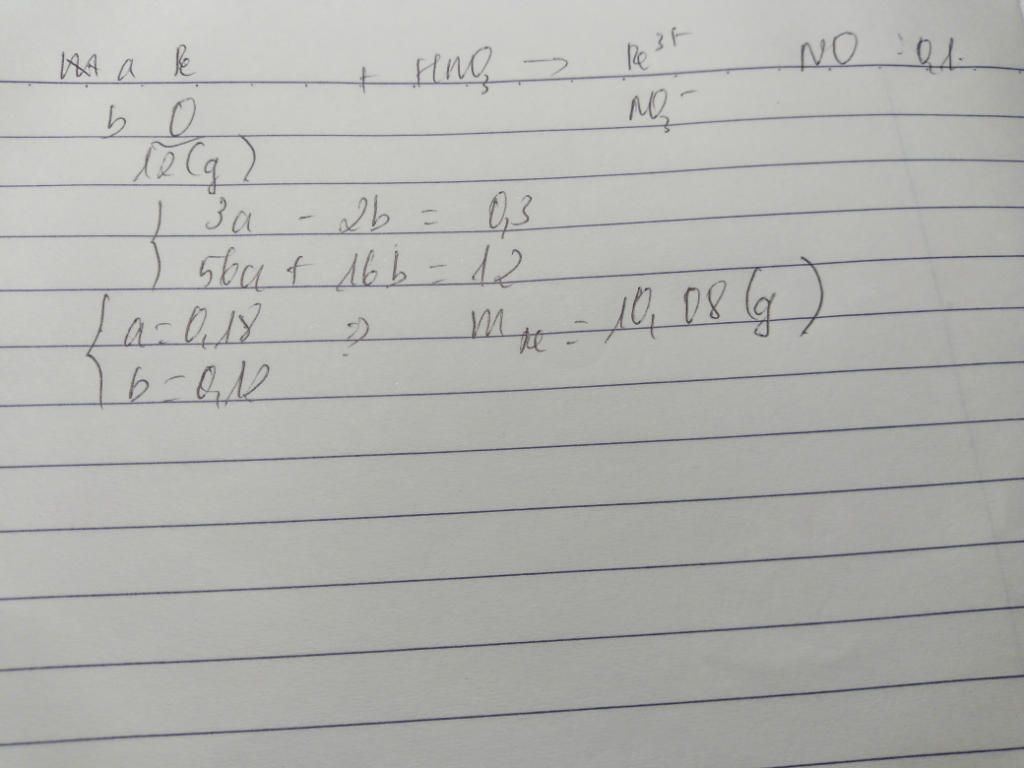 a Fe + HNO3 → Fe3+ NO : 0,1.
b O NO3-
12(g)
3a - 2b = 0,3
56a + 16b = 12
a = 0,18 => mFe = 10,08(g)
b = 0,12